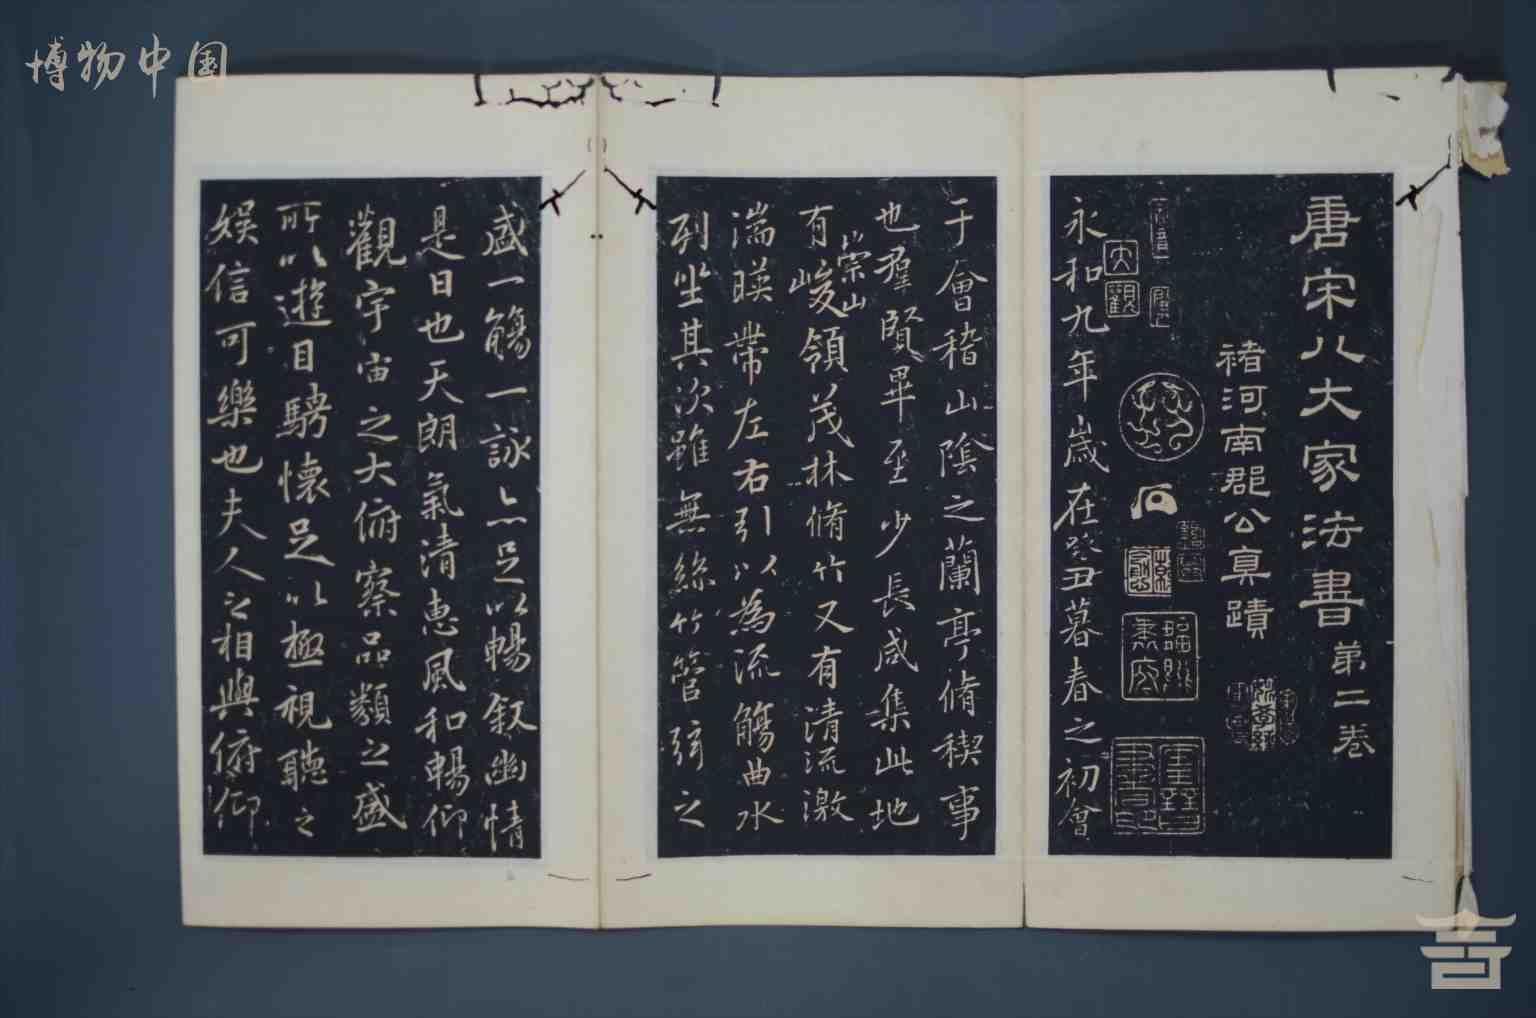 博物中国
唐宋八大家法書第二卷
褚河南郡公真蹟
大觀
永和九年歲在癸丑暮春之初會
于會稽山陰之蘭亭脩稧事
也羣賢畢至少長咸集此地
有崇山峻領茂林脩竹又有清流激
湍暎帶左右引以為流觴曲水
列坐其次雖無絲竹管弦之
盛一觴一詠亦足以暢敘幽情
是日也天朗氣清惠風和暢仰
觀宇宙之大俯察品類之盛
所以遊目騁懷足以極視聽之
娛信可樂也夫人之相與俯仰